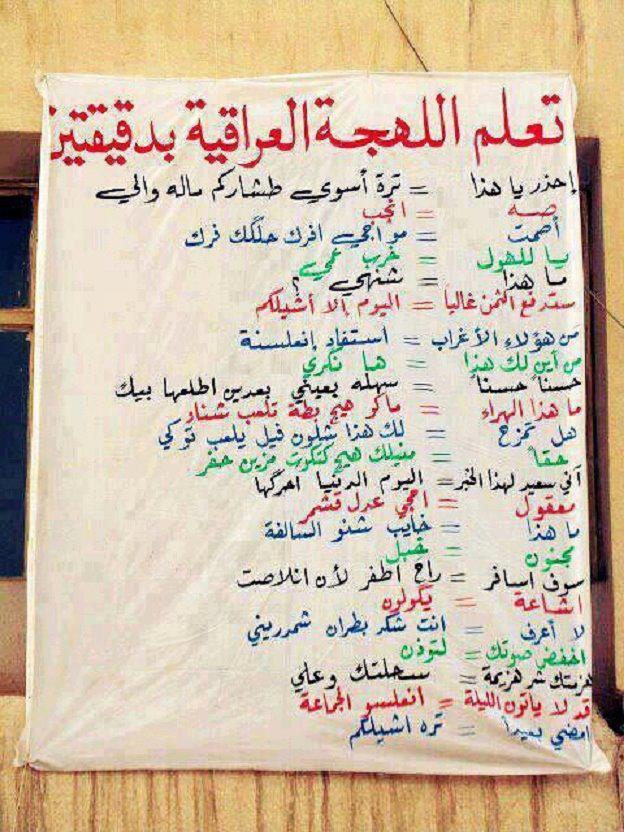 تعلم اللهجة العراقية بدقيقتين
إحذر يا هذا = ترة أسوي طشاركم ماله والي
صه = انجب
أصمت = مو اجي افرك حلگك فرك
يا للهول = خرب عمي
ما هذا = شنهي ؟
ستدفع الثمن غالياً = اليوم إلا أشيلكم
من هؤلاء الأغراب = استفاد إنعلسنة
من أين لك هذا = هبا نكري
حسناً حسناً = سهله بعيني بعدين اطلعها بيك
ما هذا الهراء = ماكو هيج بطة تلعب شناو
هل تمزح = لك هذا شلون فيل يلعب توكي
حقاً = منيلك هيج كتكوت مزين حفر
أني سعيد لهذا الخبر = اليوم الدنيا احرگها
معقول = احجي عدل قشمر
ما هذا = خايب شنو السالفة
مجنون = خبل
سوف اسافر = راح اطفر لأن انلاصت
اشاعة = يگولون
لا أعرف = انت شكر بطران شمدريني
اخفض صوتك = لتوذن
هزمتك شر هزيمة = سحلتك وعلي
قد لا يأتون الليلة = انعلسو الجماعة
امضي بعيداً = تره اشيلكم